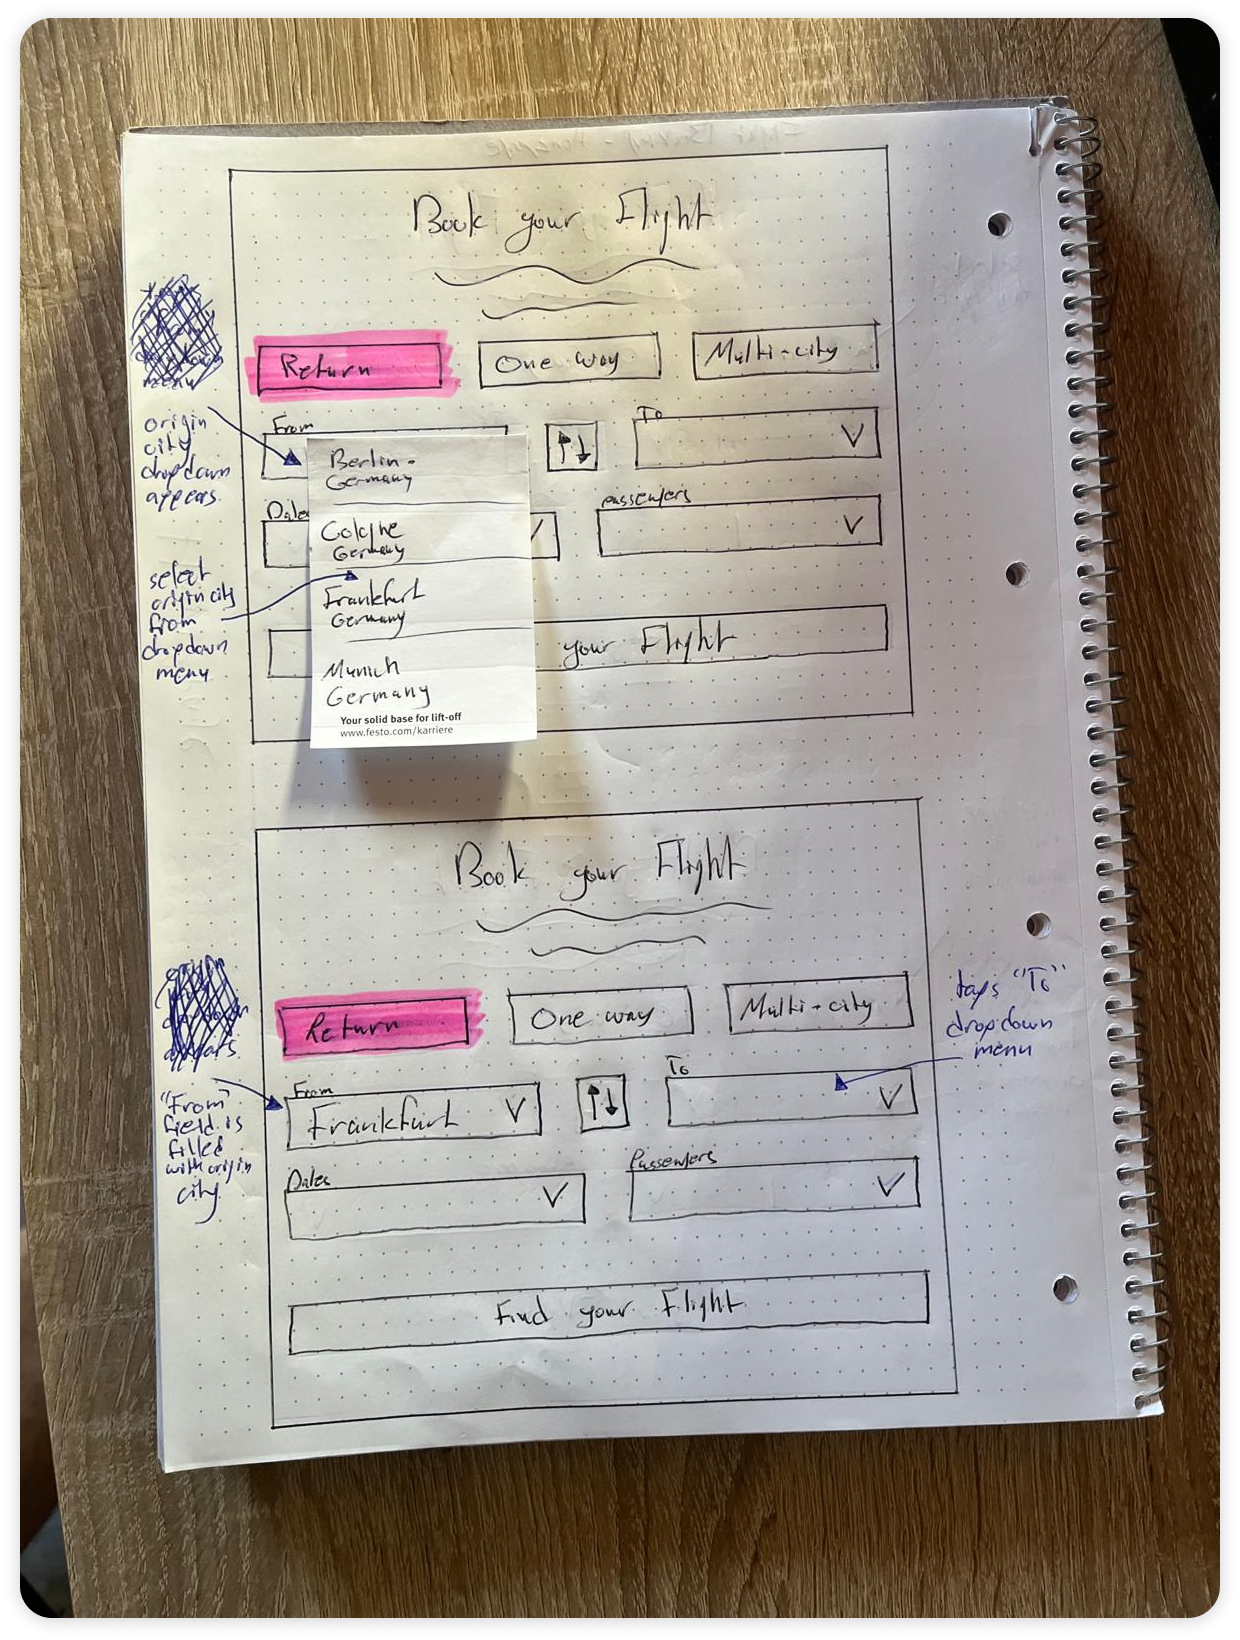 Book your Flight
Return
One way
Multi-city
menu
origin
city
dropdown
appears
From
To
Berlin -
Germany
Dates
passengers
Cologne
Germany
select
origin city
from
dropdown
menu
Frankfurt
Germany
your Flight
Munich
Germany
Your solid base for lift-off
www.festo.com/karriere
Book your Flight
Return
One way
Multi-city
taps "To"
dropdown
menu
"From"
field is
filled
with origin
city
From
Frankfurt
To
Dates
Passengers
Find your Flight